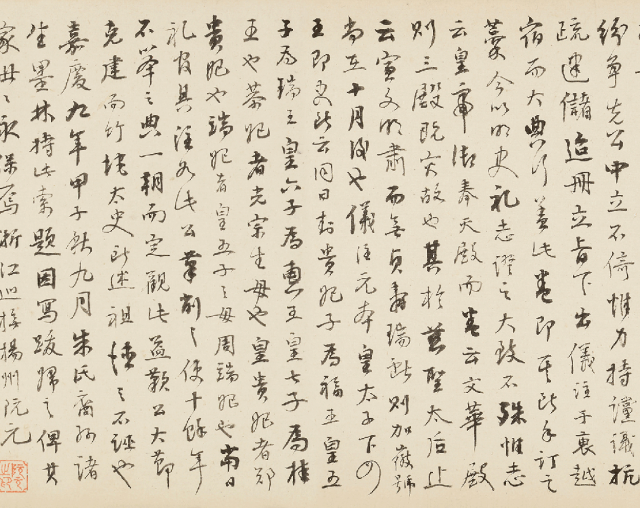 紛爭先公中立不倚惟力持讜議抗
疏建儲迨冊立旨下出儀注于衷越
宿而大典行蓋此卷即其時手訂之
藁今以明史禮志證之大致不殊惟志
云皇帝御奉天殿而卷云文華殿
則三殿既災故也其於慈聖太后止
云宣文明肅而無貞壽端獻則加徽號
尚在十月後也儀注元本皇太子下四
王即史所云同日封貴妃子為福王皇五
子為瑞王皇六子為惠王皇七子為桂
王也恭妃者光宗生母也皇貴妃者鄭
貴妃也端妃者皇五子之母周端妃也當日
禮官具注此公筆削之使十餘年
不舉之典一朝而定觀此益歎公大節
克建而竹垞太史所述祖德之不誣也
嘉慶九年甲子秋九月朱氏裔孫諸
生墨林持此索題因寫跋歸之俾其
家世々永保焉浙江巡撫揚州阮元
阮元之印